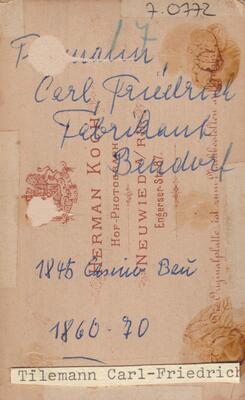 7.0772
17
Carl Friedrich
Fabrikant
Bendorf
HERMAN KOCH
HOF-PHOTOGRAPH
NEUWIED
Engerser-Str.
Die Originalplatte
1845 Casino Ben
1860-70
Tilemann Carl-Friedrich